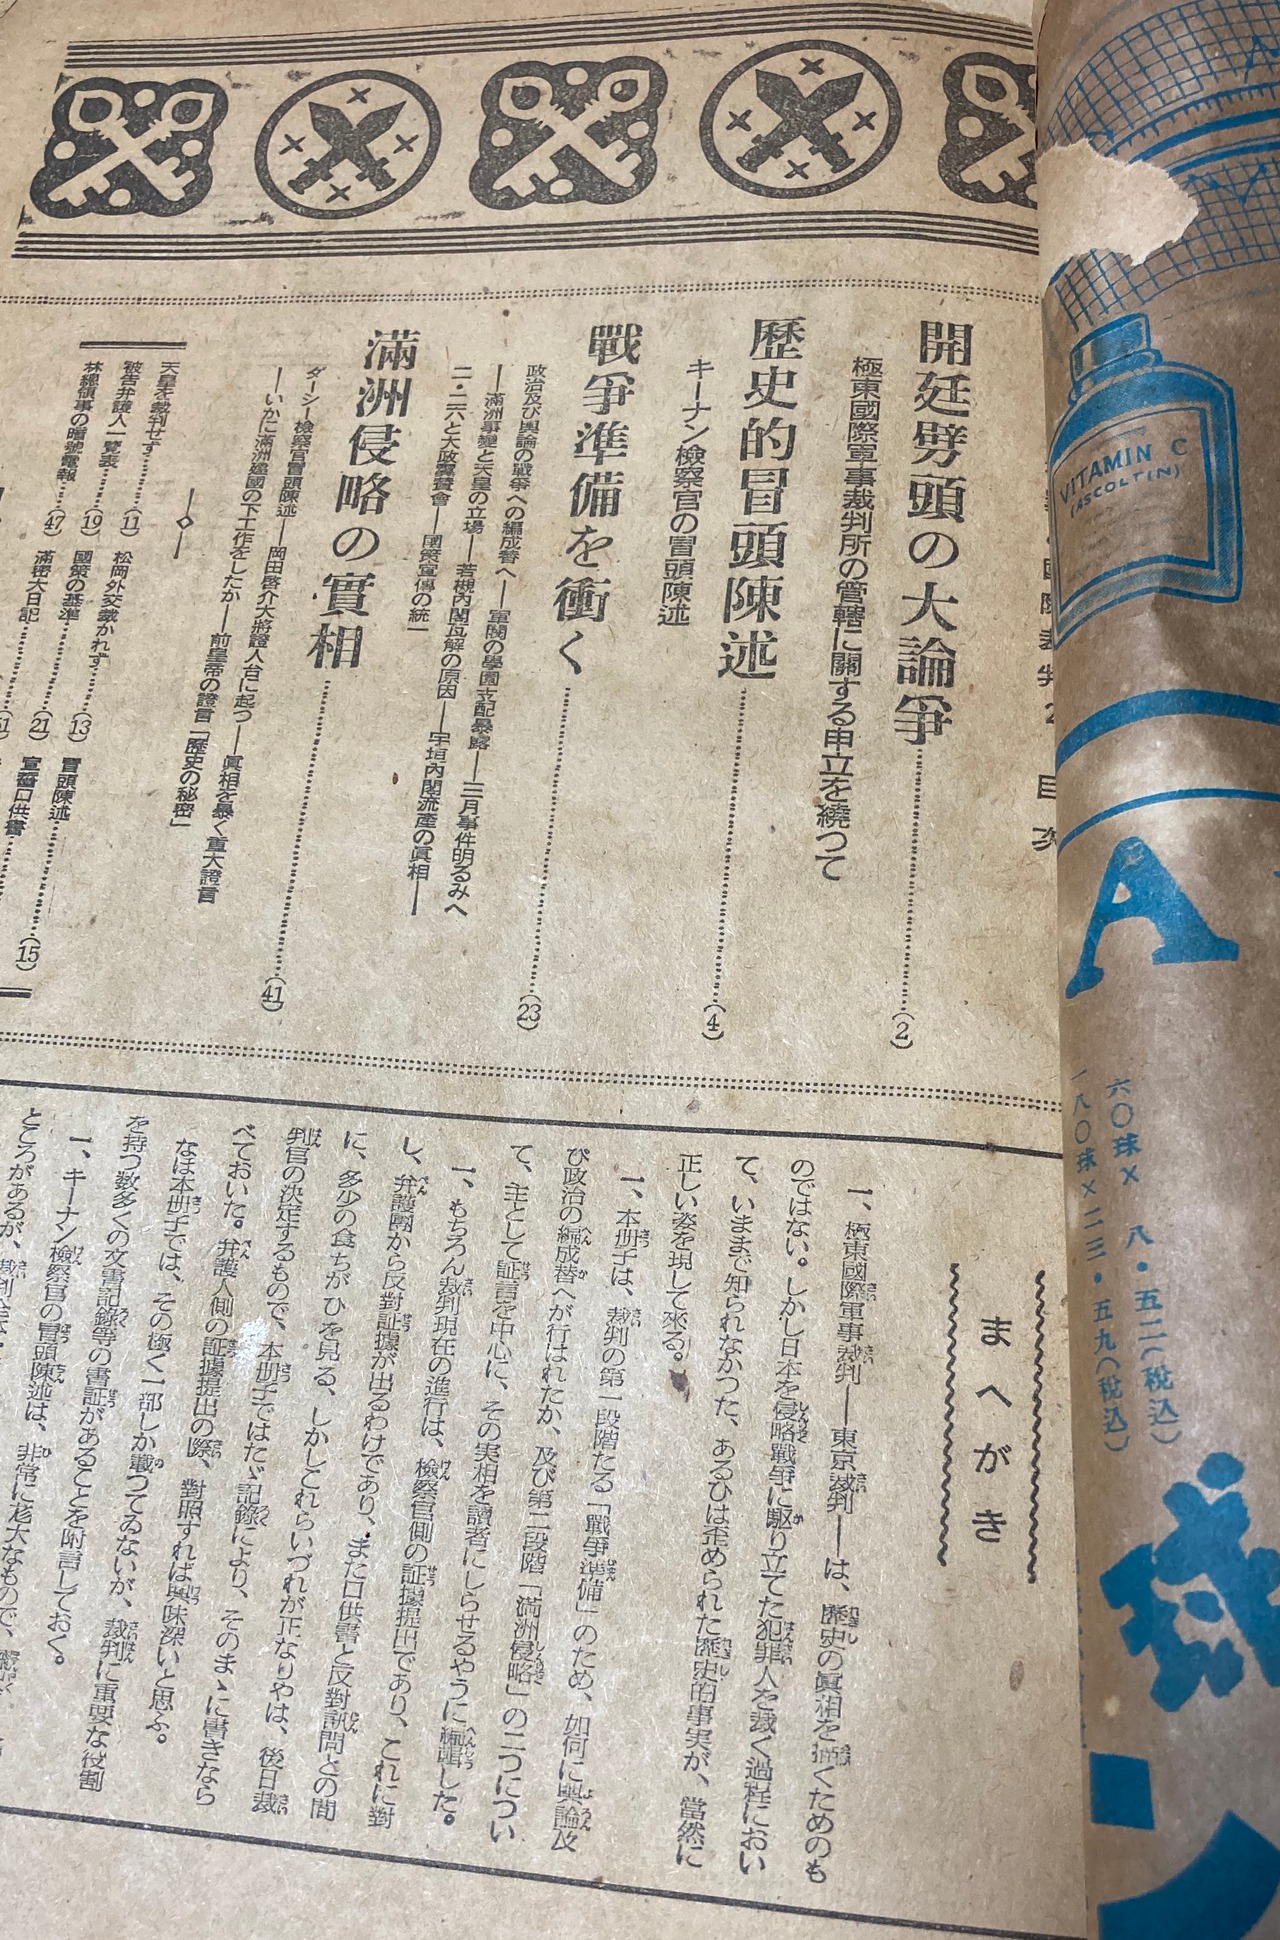 目次
開廷劈頭の大論爭……(2)
極東國際軍事裁判所の管轄に關する申立を繞つて
歷史的冒頭陳述……(4)
キーナン檢察官の冒頭陳述
戰爭準備を衝く……(23)
政治及び輿論の戰爭への編成替へ――軍閥の學園支配暴露――三月事件明るみへ
――滿洲事變と天皇の立場――若槻內閣瓦解の原因――宇垣內閣流産の眞相――
二・二六と大政翼賛會――國策宣傳の統一
滿洲侵略の實相……(41)
ダーシー檢察官冒頭陳述――岡田啓介大將證人台に起つ――眞相を暴く重大證言
――いかに滿洲建國の下工作をしたか――前皇帝の證言「歷史の秘密」
天皇を裁判せず……(11)
被告弁護人一覽表……(19)
林總領事の暗號電報……(47)
松岡外交裁かれず……(13)
國策の基準……(21)
滿密大日記……(51)
冒頭陳述……(15)
宣誓口供書
まへがき
一、極東國際軍事裁判――東京裁判――は、歷史の眞相を描くためのも
のではない。しかし日本を侵略戰爭に駆り立てた犯罪人を裁く過程におい
て、いままで知られなかつた、あるひは歪められた歷史的事実が、當然に
正しい姿を現して來る。
一、本册子は、裁判の第一段階たる「戰爭準備」のため、如何に輿論及
び政治の編成替へが行はれたか、及び第二段階「満洲侵略」の二つについ
て、主として証言を中心に、その実相を讀者にしらせるやうに編輯した。
一、もちろん裁判現在の進行は、檢察官側の証據提出であり、これに對
し、弁護團から反對証據が出るわけであり、また口供書と反對訊問との間
に、多少の食ちがひを見る、しかしこれらいづれが正なりやは、後日裁
判官の決定するもので、本册子ではたゞ記錄により、そのまゝに書きなら
べておいた。弁護人側の証據提出の際、對照すれば興味深いと思ふ。
なほ本册子では、その極く一部しか載つてゐないが、裁判に重要な役割
を持つ数多くの文書記錄等の書証があることを附言しておく。
一、キーナン檢察官の冒頭陳述は、非常に尨大なもので、
ところがあるが、裁判全体
VITAMIN C
(ASCOLTIN)
A
六〇球入 八・五二(税込)
一八〇球入 二三・五九(税込)
球